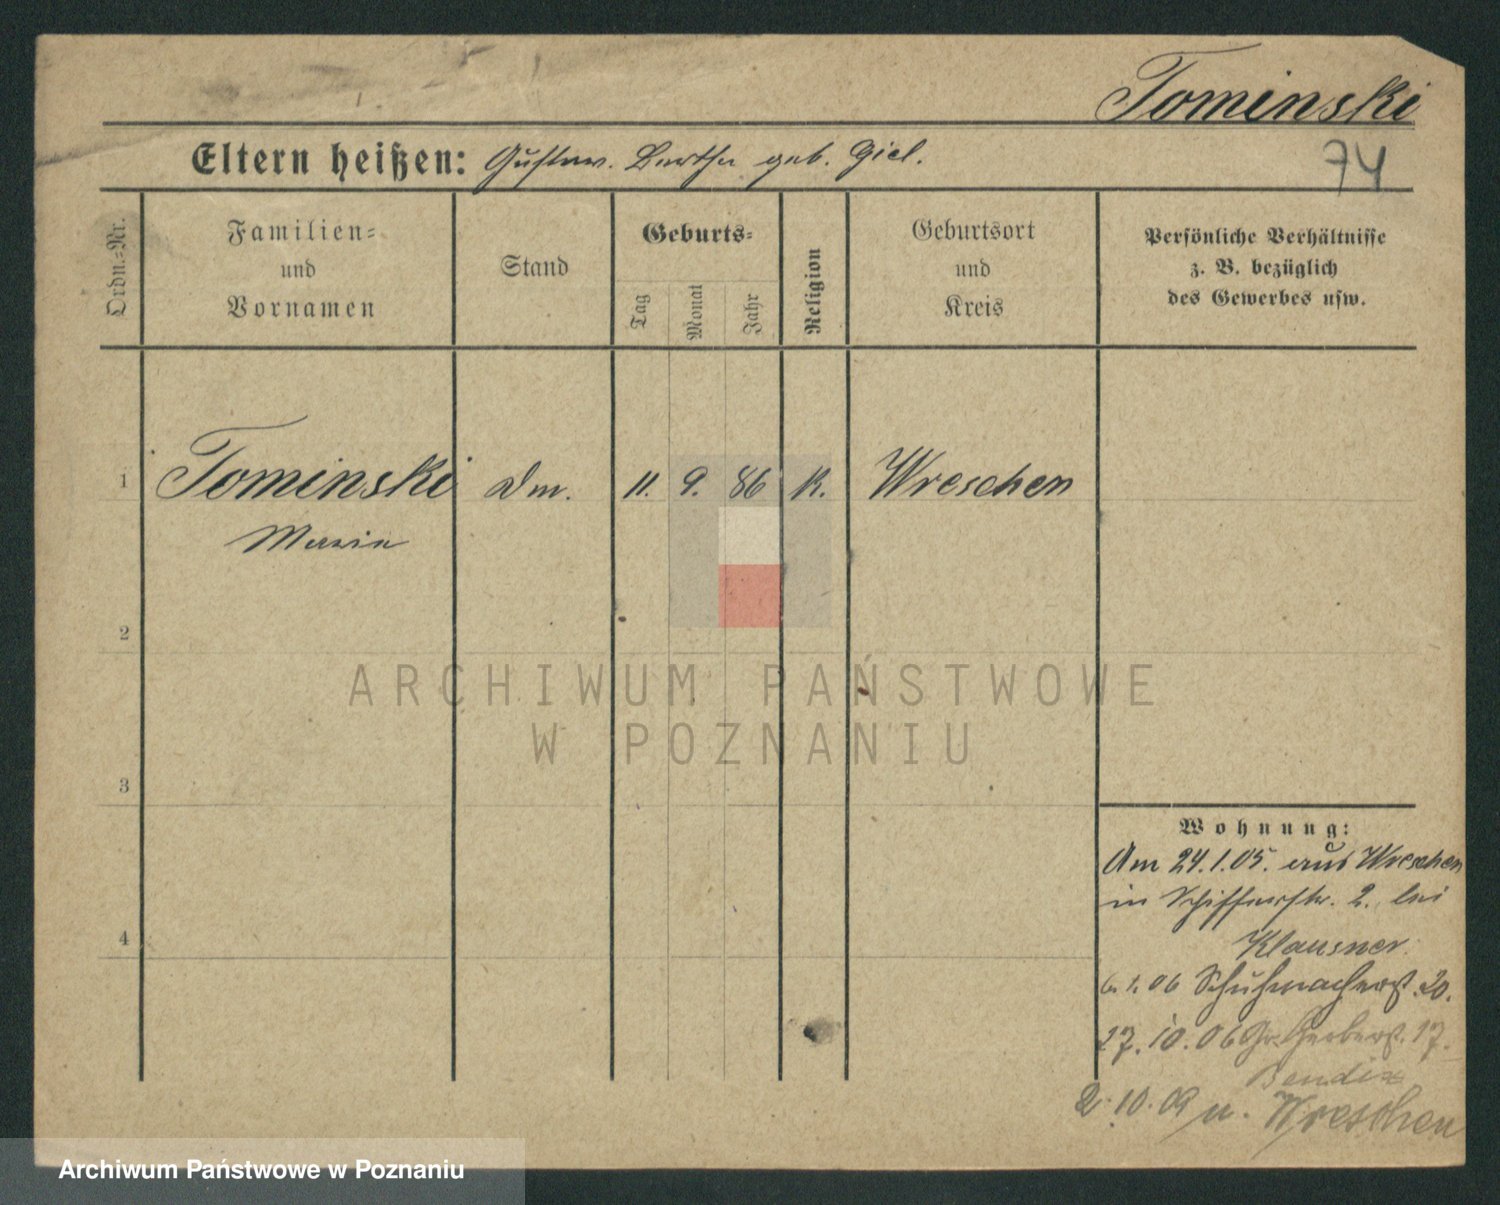 Tominski
Eltern heißen: Gustav. Bertha geb. Giel.
74
Ordn.-Nr.
Familien-
und
Vornamen
Stand
Geburts-
Tag
Monat
Jahr
Religion
Geburtsort
und
Kreis
Persönliche Verhältnisse
z. B. bezüglich
des Gewerbes usw.
1 Tominski 11. 9. 86 K. Wreschen
Maria
2
3
4
Wohnung:
Am 24.1.05. aus Wreschen
in Schifferstr. 2. bei
Klausner.
6. 1. 06 Schuhmacherst. 20.
27. 10. 06 Gr. Gerberst. 17.
Bendix
2. 10. 09 n. Wreschen
ARCHIWUM PAŃSTWOWE
W POZNANIU
Archiwum Państwowe w Poznaniu